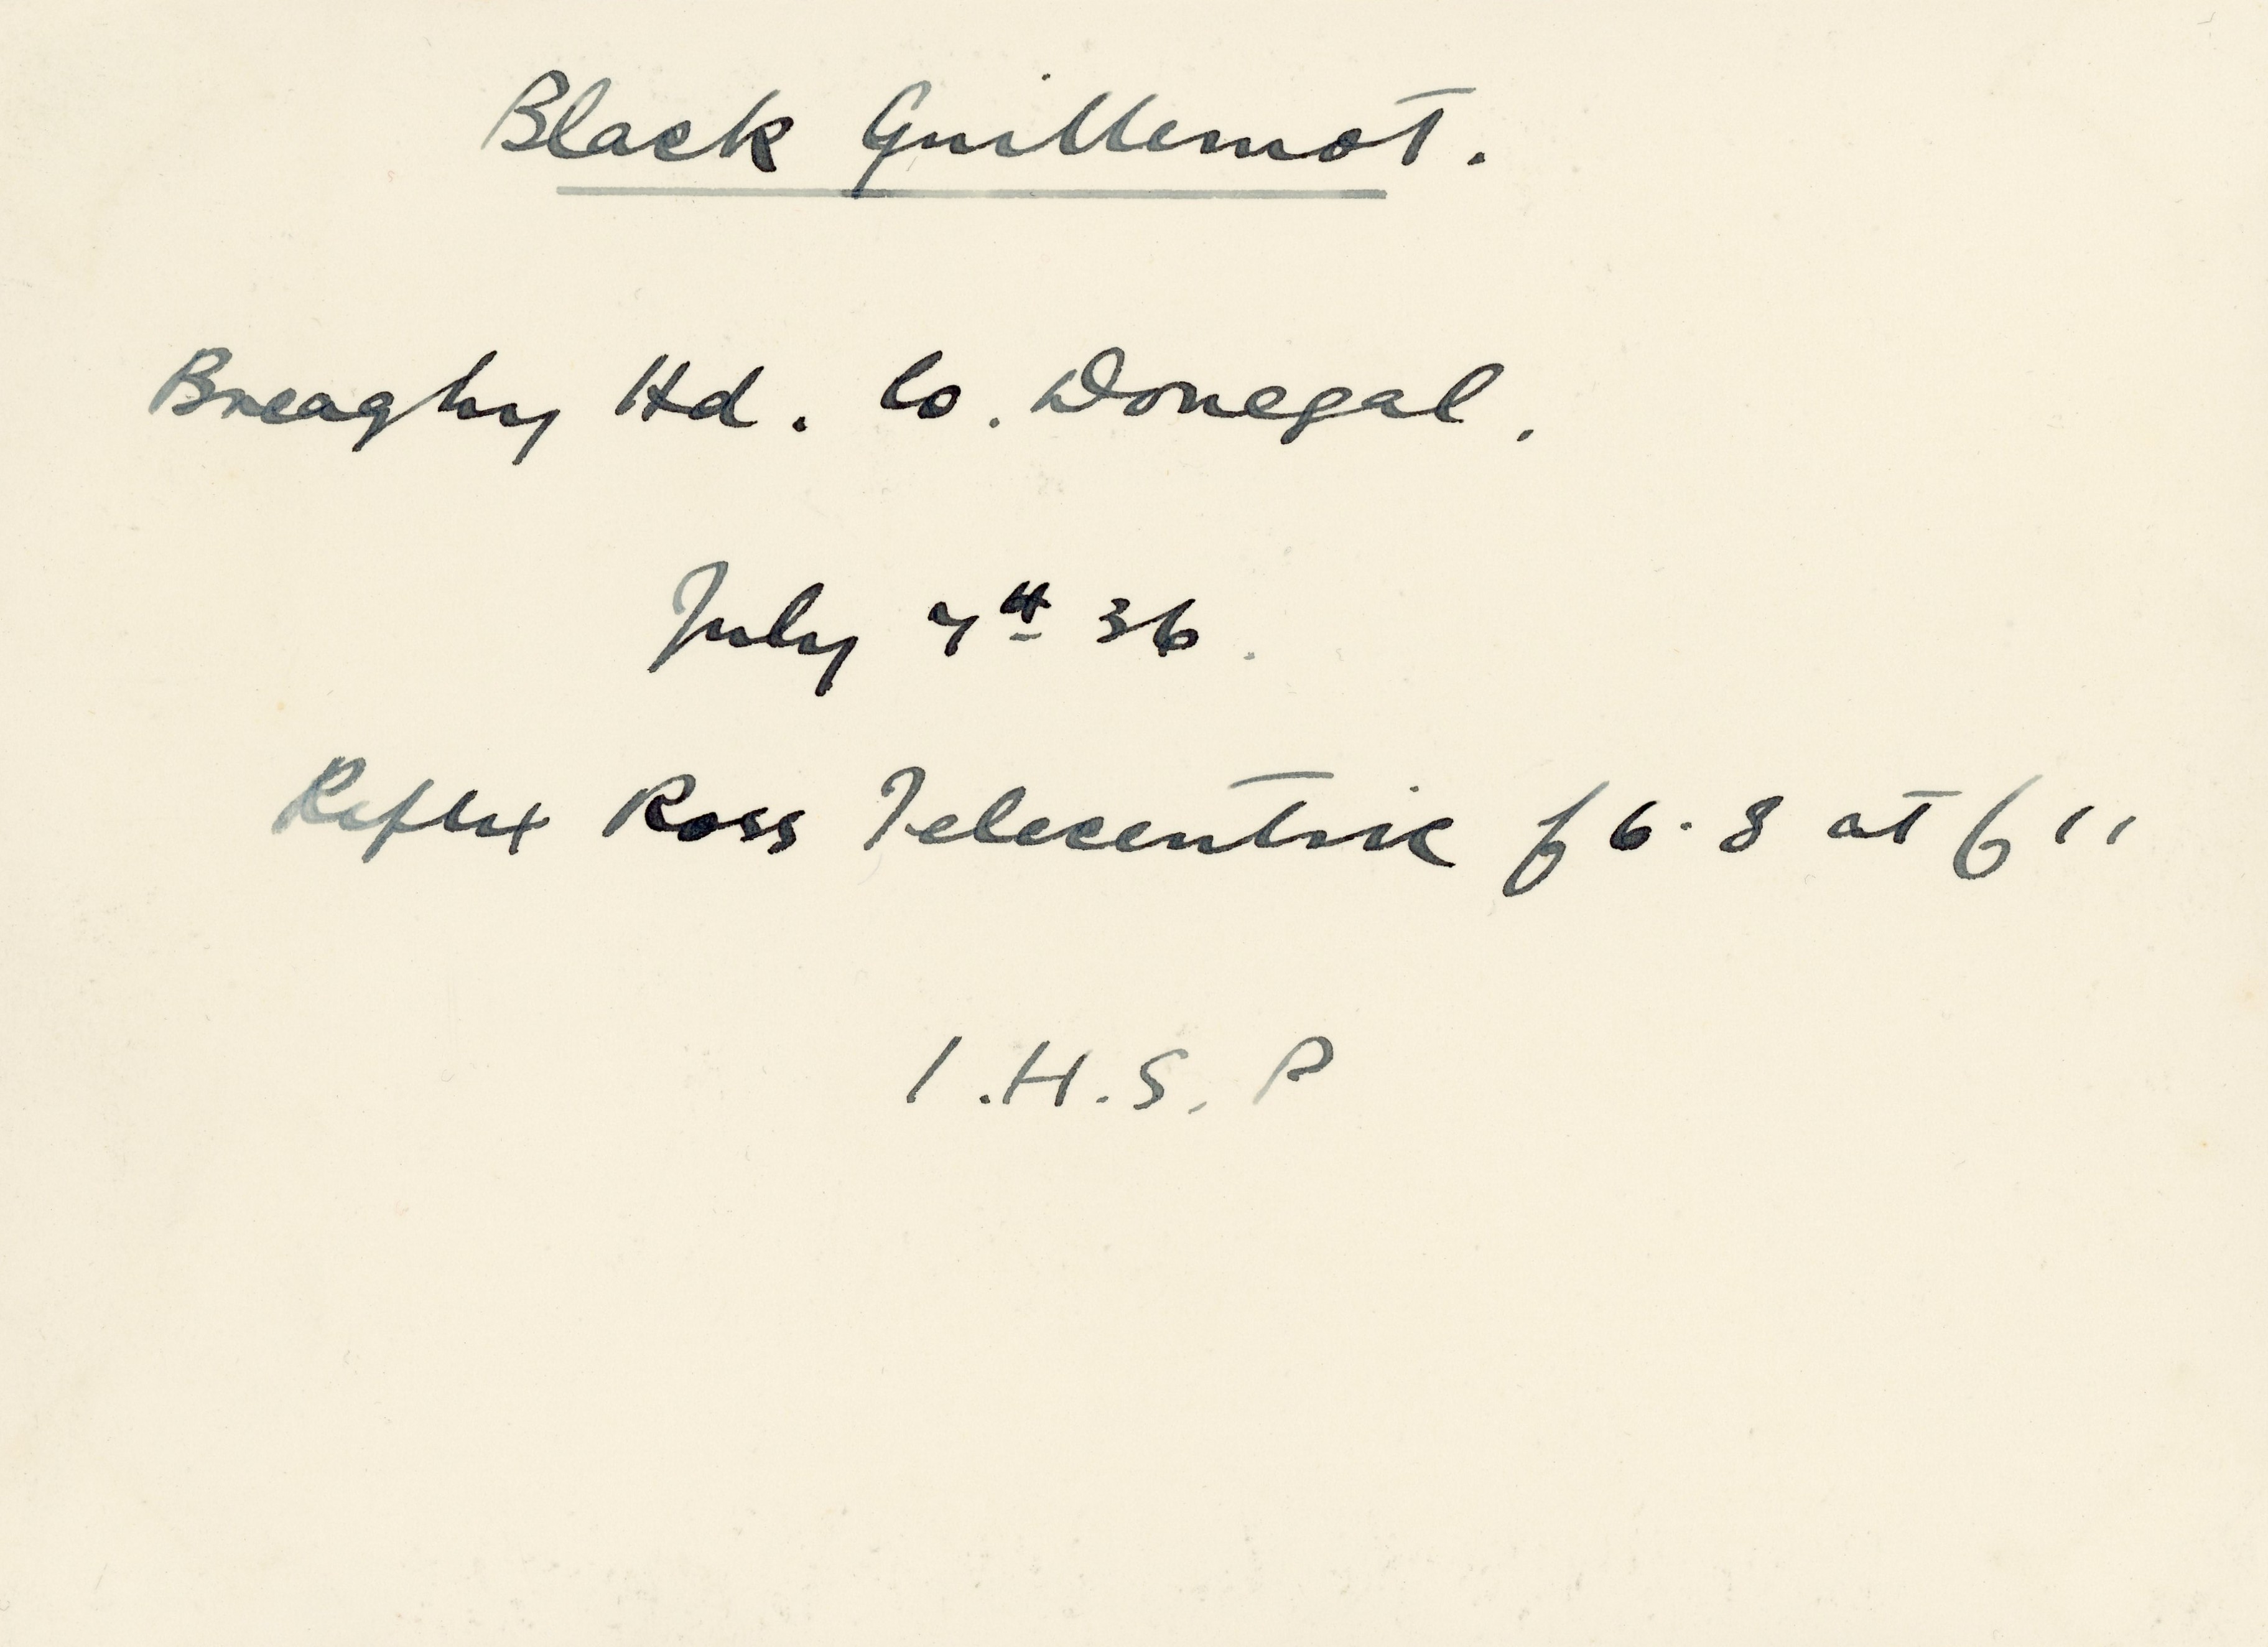 Black Guillemot.
Breaghy Hd. Co. Donegal.
July 7th 36.
Reflex Ross Telecentric f 6.8 at 6"
I.H.S.P